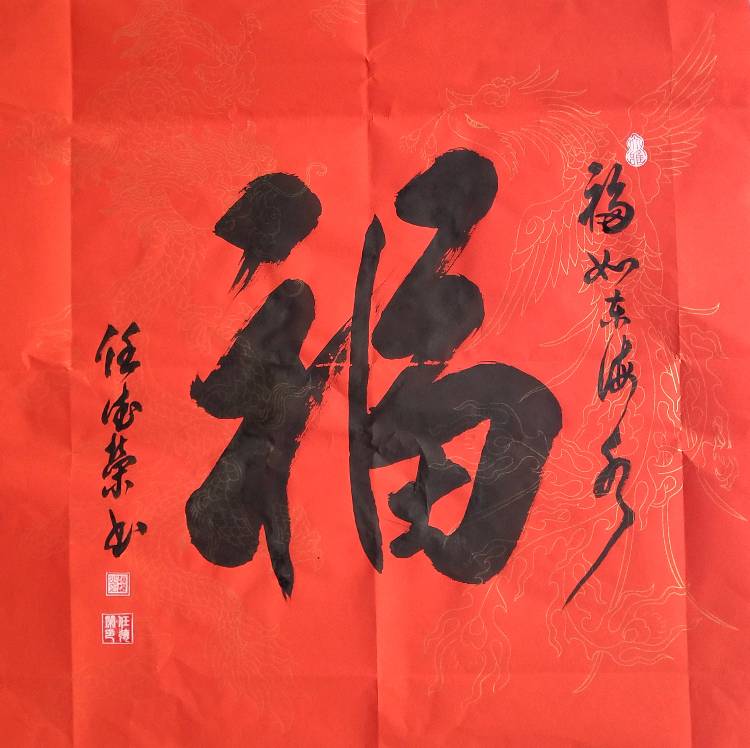 福如东海水
福
任德荣书
任德荣印